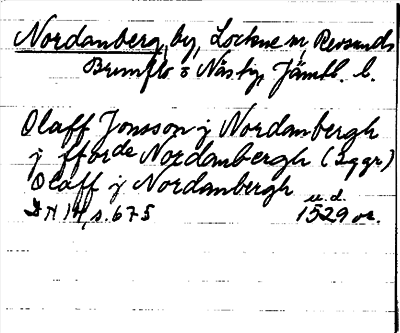 Nordanberg, by, Lockne m Revsunds
Brunflo o Näsby, Jämtl. l.
Olaff Jonsson j Nordanbergh
j fforde Nordanbergh (2ggr)
Olaff j Nordanbergh
DN 14, s. 675 u.d. 1529 or.